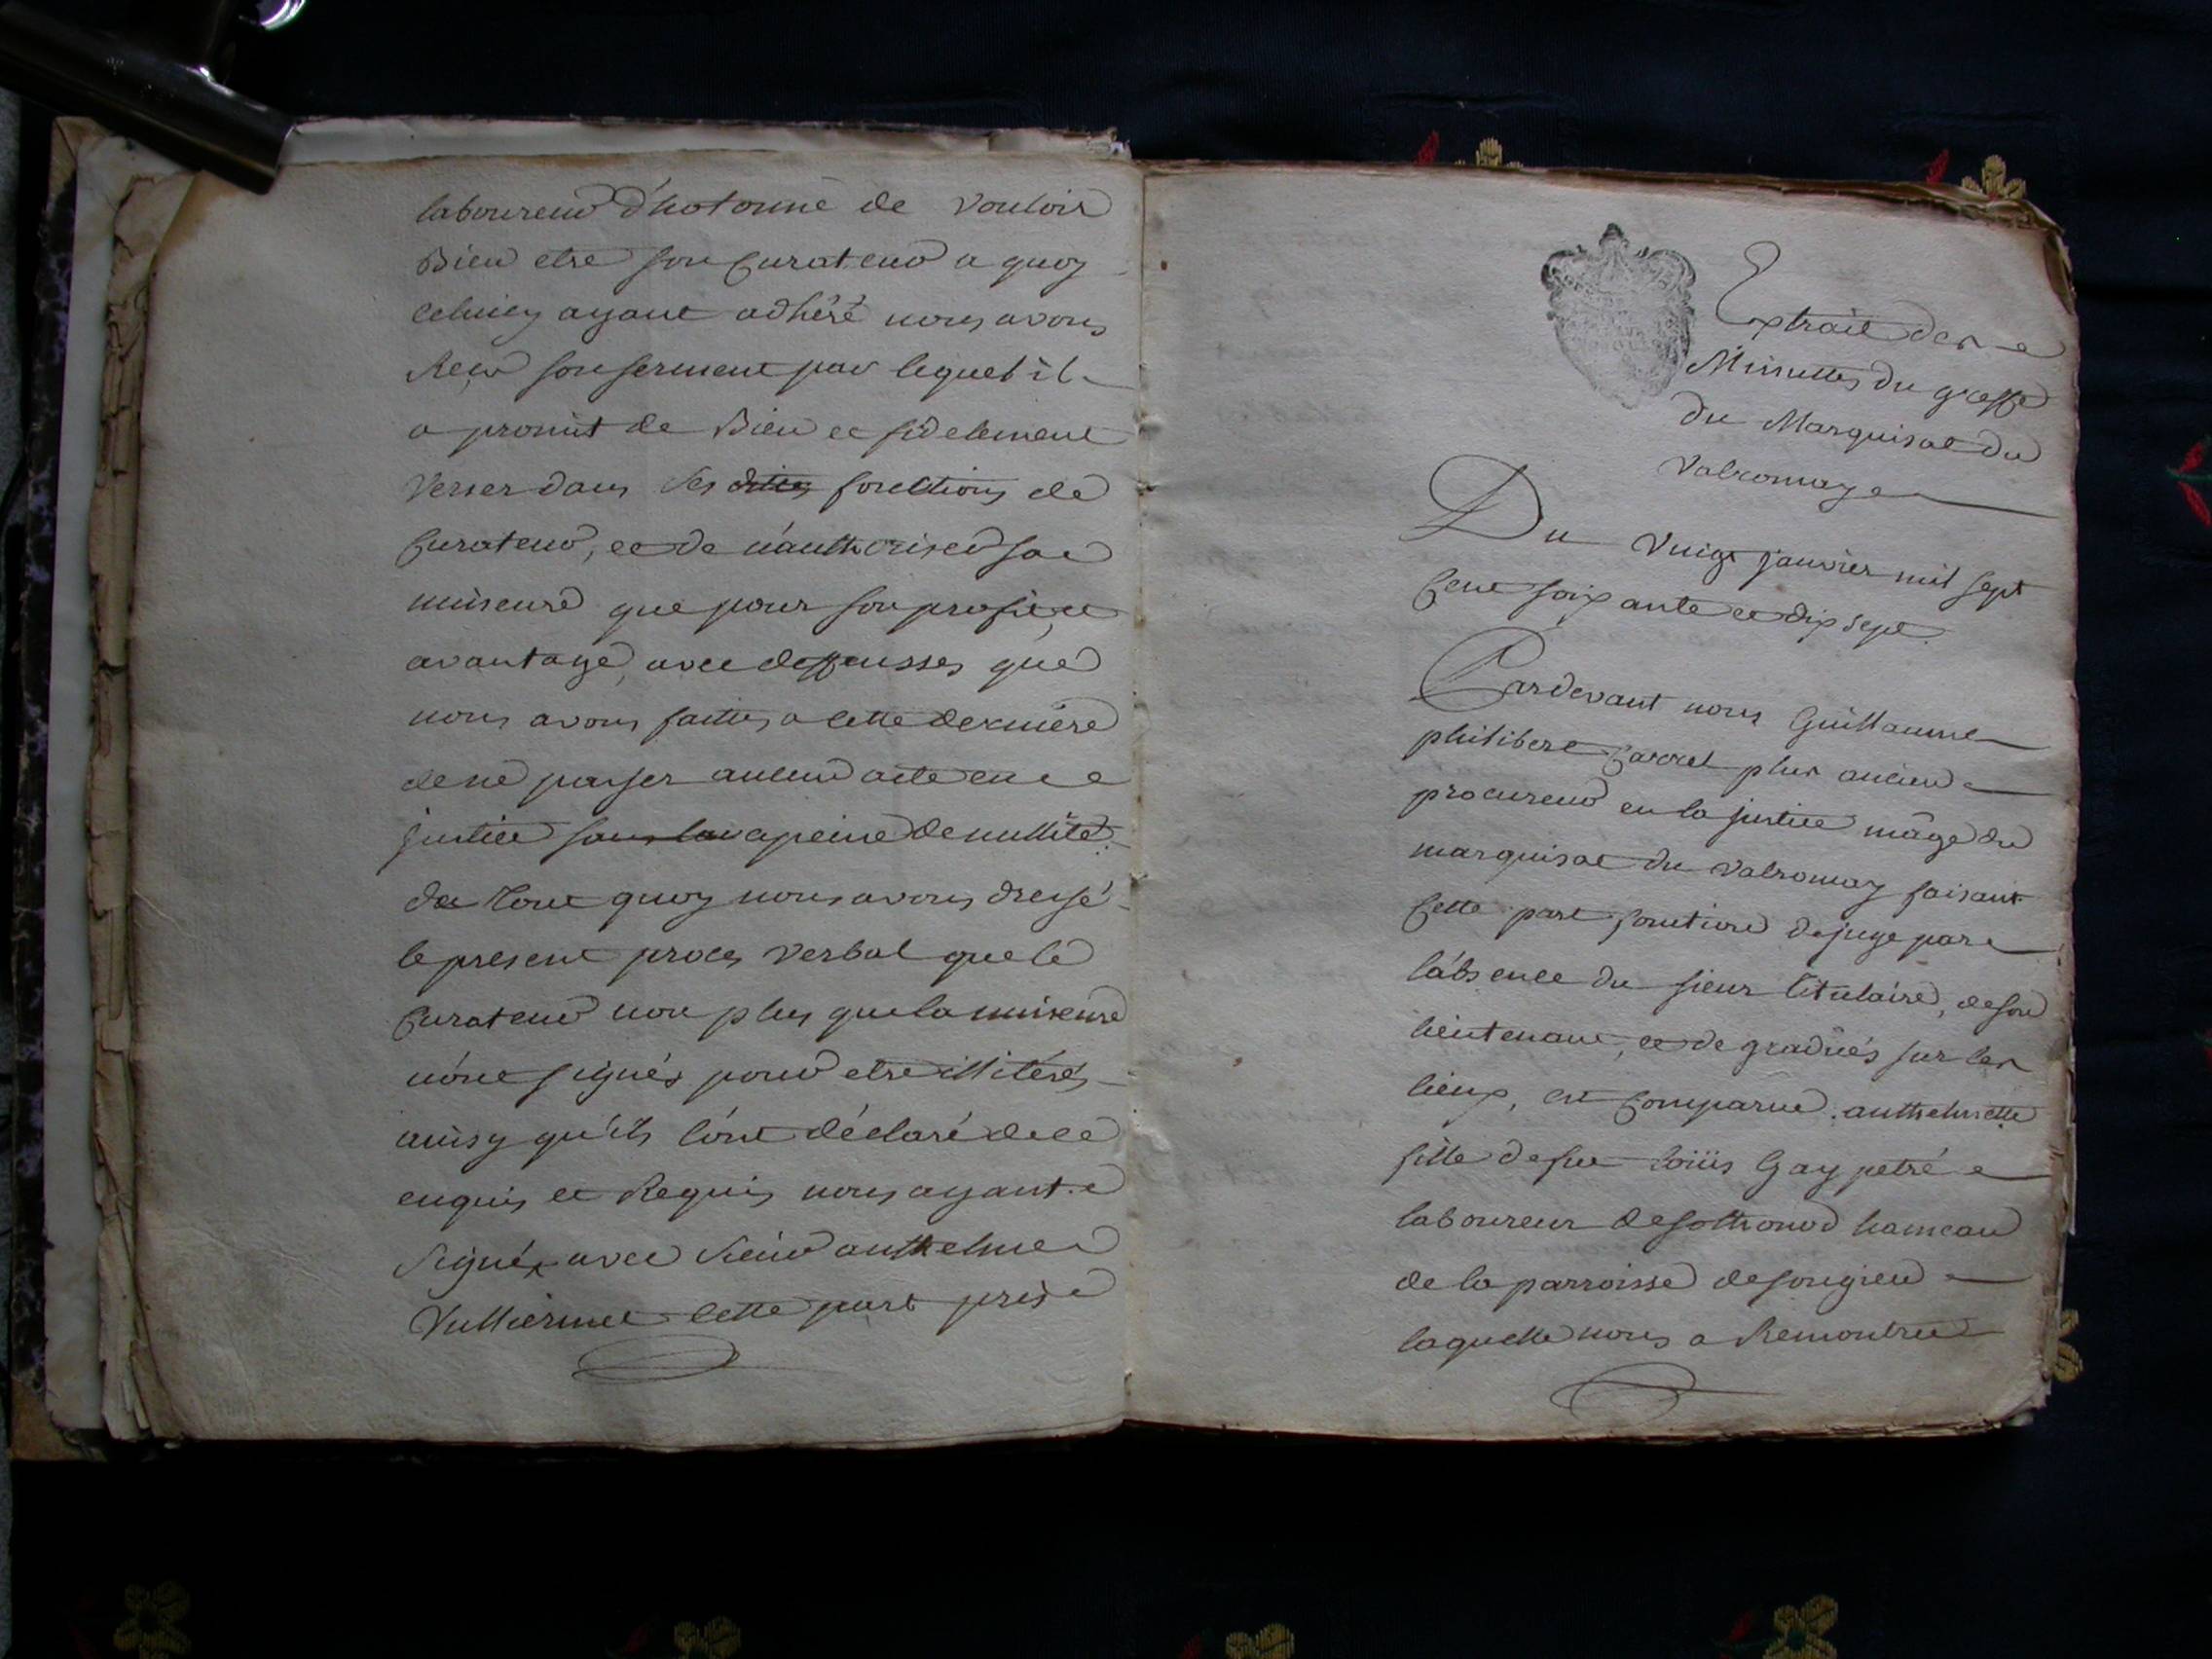 laboureur d'hotonne de vouloir
Bien etre son Curateur a quoy
celuicy ayant adhéré nous avons
Recu son serment par lequel il
a promit de Bien et fidelement
Verser dans ses dites fonctions de
Curateur, et de n'authoriser sa
mineure que pour son profit, et
avantage, avec deffensses que
nous avons faittes a cette derniere
de ne passer aucun acte en
justice sans lav a peine de nullité.
da tout quoy nous avons dressé
le present proces verbal que le
Curateur non plus que la mineure
n'ont signés pour etre illiterés
ainsy qu'ils l'ont déclaré de ce
enquis et Requis nous ayant
signé, avec sieur anthelme
Vulliermet cette part pris
Extrait des
Minuttes du greffe
du Marquisat du
Valromay
Du Vingt janvier mil sept
Cent soixante et dix sept.
Pardevant nous Guillaume
philibert Carrel plus ancien
procureur en la justice mâge du
marquisat du Valromay faisant
Cette part fonction de juge par
l'absence du sieur titulaire, de son
lieutenant, et de gradués sur les
lieux, est Comparue anthelmette
fille de feu loüis Gay petré
laboureur de sothonod hameau
de la parroisse de songieu
laquelle nous a Remontré